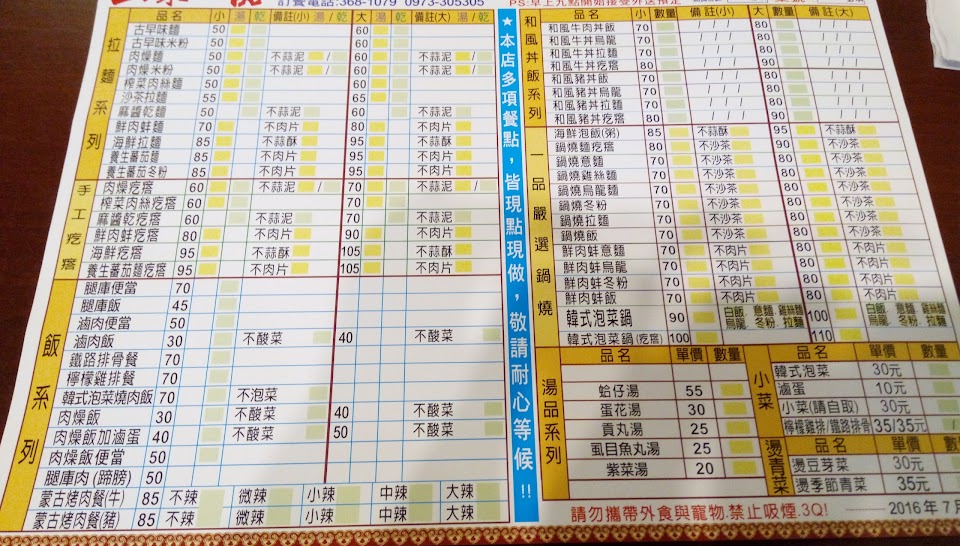 訂餐電話:368-1079 0973-305305
品名 小 湯/乾 備註(小) 湯/乾 大 湯 乾 備註(大) 湯/乾
拉麵系列
古早味麵 50 60
古早味米粉 50 60
肉燥麵 50 不蒜泥 / 60 不蒜泥 /
肉燥米粉 50 不蒜泥 / 60 不蒜泥 /
榨菜肉絲麵 50 60
沙茶拉麵 55 65
麻醬乾麵 50 不蒜泥 60 不蒜泥
鮮肉蚌麵 70 不肉片 80 不肉片
海鮮拉麵 85 不蒜酥 95 不蒜酥
養生蕃茄麵 85 不肉片 95 不肉片
養生蕃茄冬粉 85 不肉片 95 不肉片
手工疙瘩
肉燥疙瘩 60 不蒜泥 / 70 不蒜泥 /
榨菜肉絲疙瘩 60 70
麻醬乾疙瘩 60 不蒜泥 70 不蒜泥
鮮肉蚌疙瘩 80 不肉片 90 不肉片
海鮮疙瘩 95 不蒜酥 105 不蒜酥
養生蕃茄麵疙瘩 95 不肉片 105 不肉片
飯系列
腿庫便當 70
腿庫飯 45
滷肉便當 50
滷肉飯 30 不酸菜 40 不酸菜
鐵路排骨餐 70
檸檬雞排餐 70
韓式泡菜燒肉飯 70 不泡菜
肉燥飯 30 不酸菜 40 不酸菜
肉燥飯加滷蛋 40 不酸菜 50 不酸菜
肉燥飯便當 50
腿庫肉(蹄膀) 50
蒙古烤肉餐(牛) 85 不辣 微辣 小辣 中辣 大辣
蒙古烤肉餐(豬) 85 不辣 微辣 小辣 中辣 大辣
★本店多項餐點,皆現點現做,敬請耐心等候!!
品名 小 數量 備註(小) 大 數量 備註(大)
和風丼飯系列
和風牛肉丼飯 70 / / / 80 / / /
和風牛丼烏龍 70 / / / 80 / / /
和風牛丼拉麵 70 / / / 80 / / /
和風牛丼疙瘩 80 / / / 90 / / /
和風豬丼飯 70 / / / 80 / / /
和風豬丼烏龍 70 / / / 80 / / /
和風豬丼拉麵 70 / / / 80 / / /
和風豬丼疙瘩 80 / / / 90 / / /
一品嚴選鍋燒
海鮮泡飯(粥) 85 不蒜酥 95 不蒜酥
鍋燒麵疙瘩 80 不沙茶 90 不沙茶
鍋燒意麵 70 不沙茶 80 不沙茶
鍋燒雞絲麵 70 不沙茶 80 不沙茶
鍋燒烏龍麵 70 不沙茶 80 不沙茶
鍋燒冬粉 70 不沙茶 80 不沙茶
鍋燒拉麵 70 不沙茶 80 不沙茶
鍋燒飯 70 不沙茶 80 不沙茶
鮮肉蚌意麵 70 不肉片 80 不肉片
鮮肉蚌烏龍 70 不肉片 80 不肉片
鮮肉蚌冬粉 70 不肉片 80 不肉片
鮮肉蚌飯 70 不肉片 80 不肉片
韓式泡菜鍋 90 白飯、意麵、雞絲麵 烏龍、冬粉、拉麵 100 白飯、意麵、雞絲麵 烏龍、冬粉、拉麵
韓式泡菜鍋(疙瘩) 100 110
湯品系列
品名 單價 數量
蛤仔湯 55
蛋花湯 30
貢丸湯 25
虱目魚丸湯 25
紫菜湯 20
小菜
品名 單價 數量
韓式泡菜 30元
滷蛋 10元
小菜(請自取) 30元
檸檬雞排/鐵路排骨 35/35元
燙青菜
品名 單價 數量
燙豆芽菜 30元
燙季節青菜 35元
請勿攜帶外食與寵物.禁止吸煙.3Q!
2016年7月